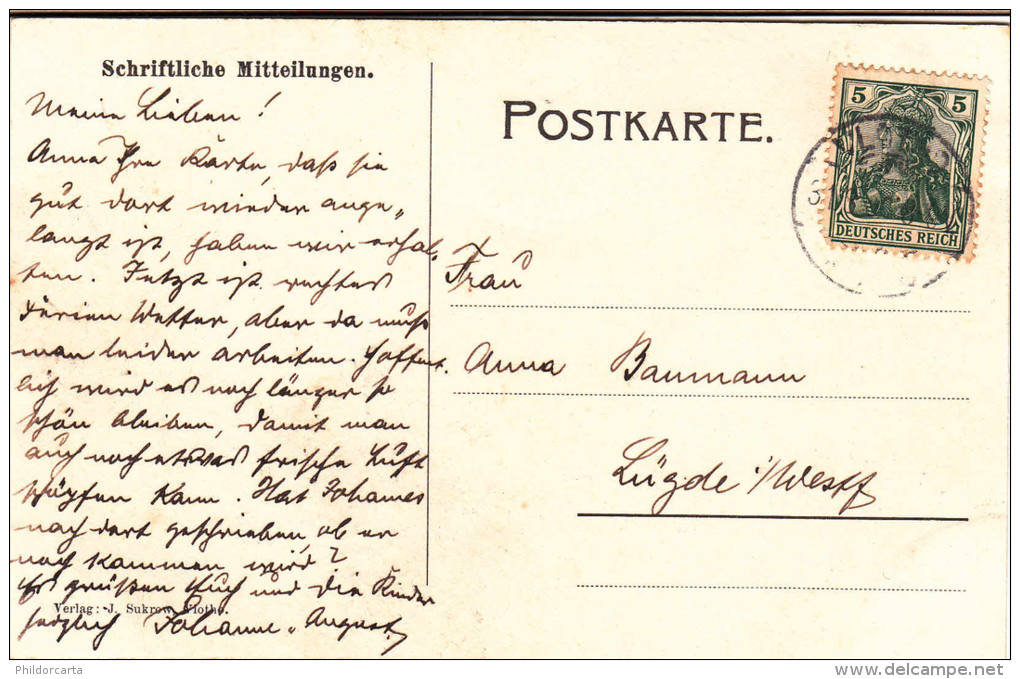 Schriftliche Mitteilungen.
POSTKARTE.
5 5
DEUTSCHES REICH
Meine Lieben!
Anna Ihre Karte, daß sie
gut dort wieder ange„
langt ist, haben wir erhal„
ten. Jetzt ist rechtes
Ferien Wetter, aber da muß
man leider arbeiten. Hoffent„
lich wird es noch länger so
schön bleiben, damit man
auch noch etwas frische Luft
schöpfen kann. Hat Johannes
nach dort geschrieben, ob er
noch kommen wird?
Es grüßen Euch und die Kinder
herzlich Johanne u. August.
Verlag: J. Sukrow, Vlotho.
Frau
Anna Baumann
Lügde i/Westf
Phildorcarta
www.delcampe.net